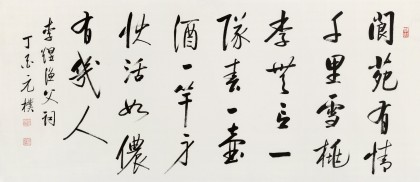 阆苑有情
千里雪桃
李无言一
队春一壶
酒一竿身
快活如侬
有几人
李煜渔父词
丁
元朴